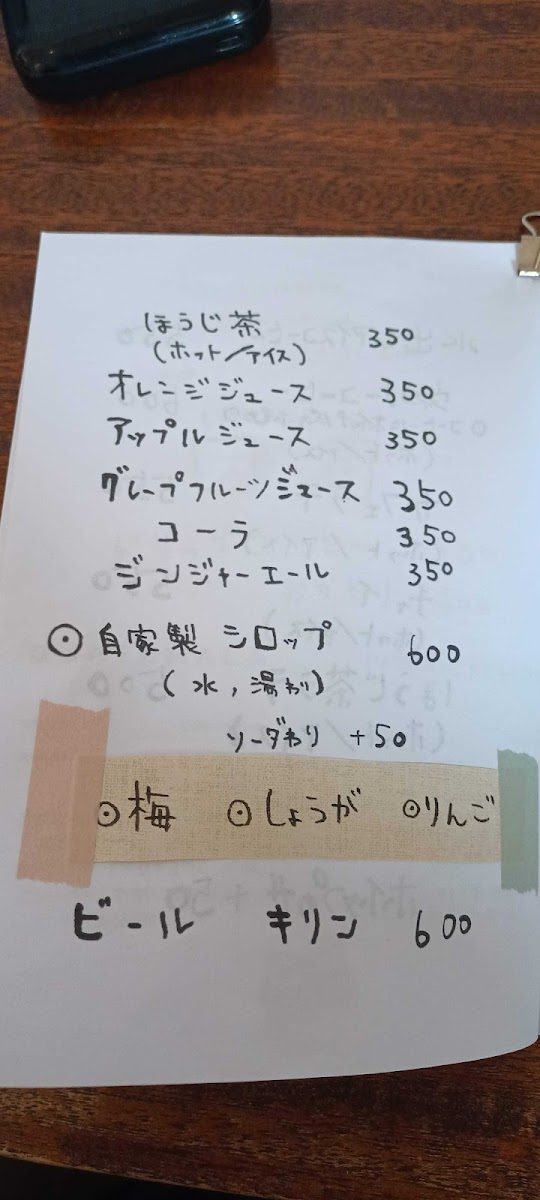 ほうじ茶 350
(ホット/アイス)
オレンジジュース 350
アップルジュース 350
グレープフルーツジュース 350
コーラ 350
ジンジャーエール 350
⊙ 自家製 シロップ 600
(水,湯わり)
ソーダわり +50
⊙梅 ⊙しょうが ⊙りんご
ビール キリン 600